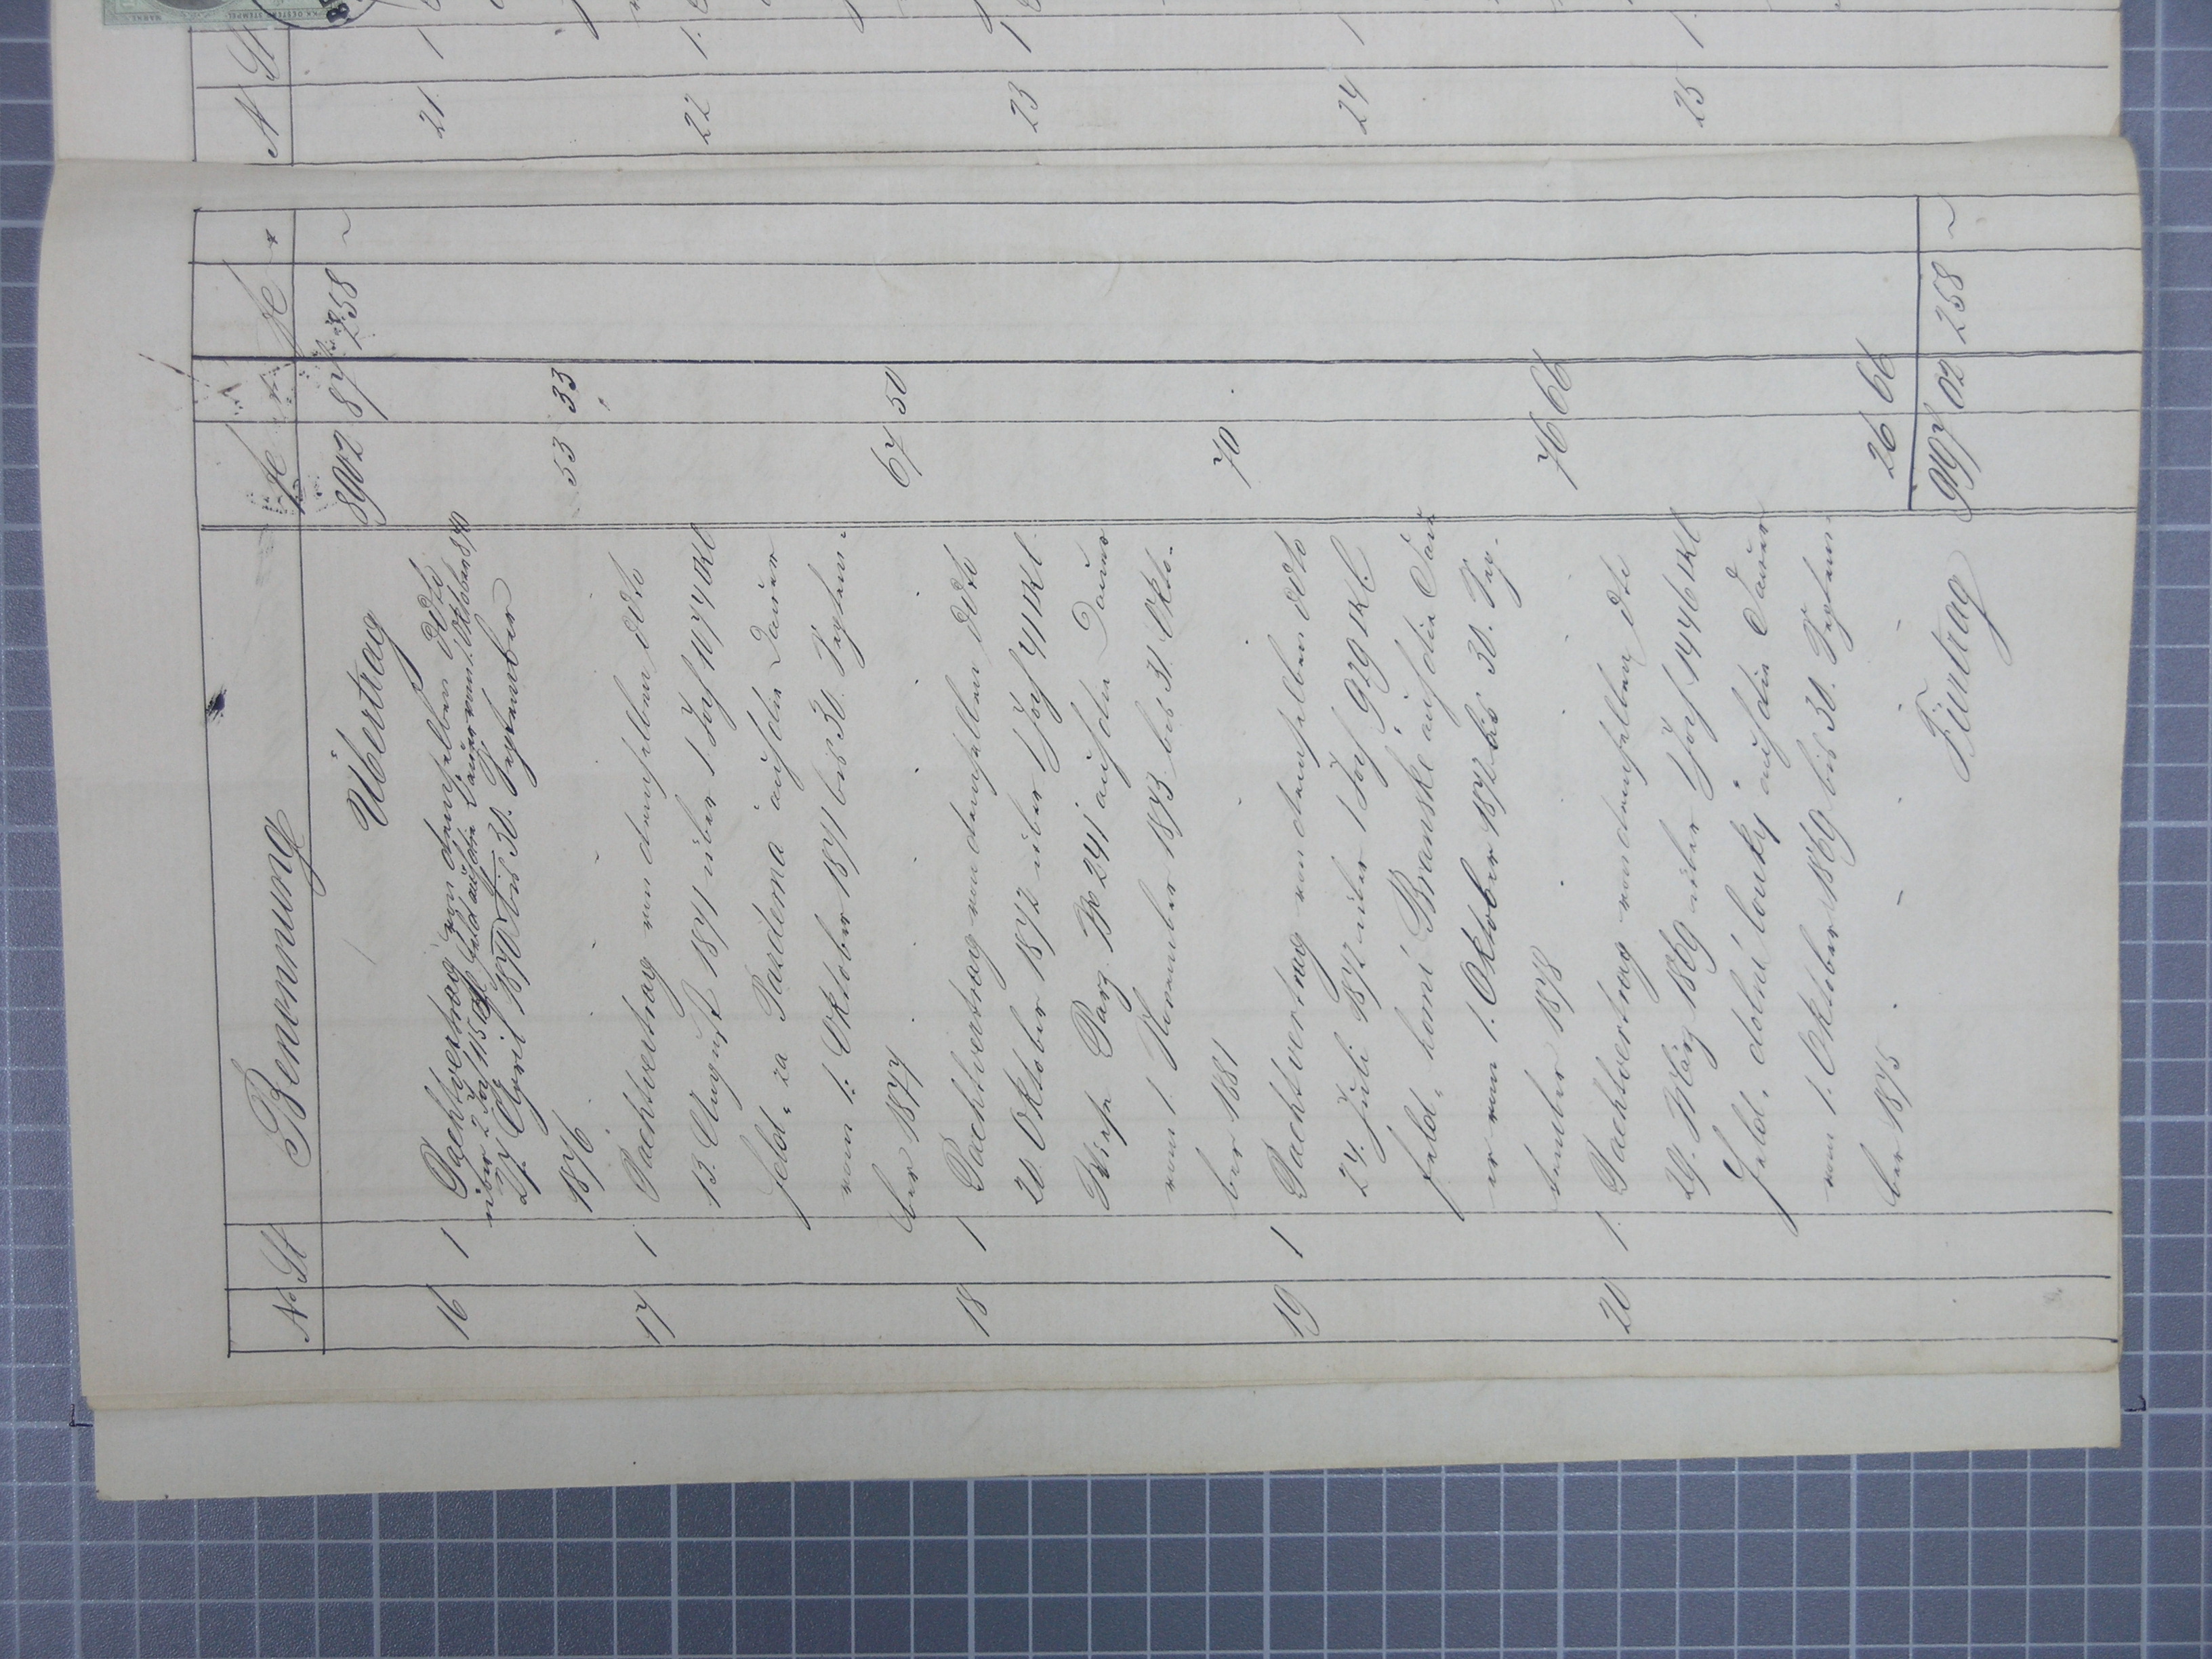 No St Benennung fl x fl x
Übertrag 8902 87 258 ~
16 1 Pachtvertrag von demselben ddto
über 2 Joch 115 □Kl Feld auf die Dauer vom 1. Oktober 870
27. April 1870 bis 30. September
1876. 53 33
17 1 Pachtvertrag von demselben ddto
13. August 1871 über 1 Joch 1074 □Kl
Feld „ za Pazderna auf die Dauer
vom 1. Oktober 1871 bis 30. Septem-
ber 1877 67 50
18 1 Pachtvertrag von demselben ddto
20. Oktober 1872 über 1 Joch 41 □Kl.
Wiese Parz. No 241 auf die Dauer
vom 1. November 1873 bis 31. Okto-
ber 1881 70 .
19 1 Pachtvertrag von demselben ddto
24. Juli 1872 über 1 Joch 929 □Kl.
Feld „ horní Branské auf die Dau
er vom 1. Oktober 1872 bis 30. Sep-
tember 1878 76 66
20 1. Pachtvertrag von demselben ddto
29. März 1869 über 1 Joch 1446 □Kl
Feld „ dolní louky auf die Dauer
vom 1. Oktober 1869 bis 30. Septem-
ber 1875 26 66
Fürtrag 9197 02 258 ~
N St
21. 1
22 1.
23 1
24 1
25 1.
K.K. OESTERR. STEMPEL MARKE